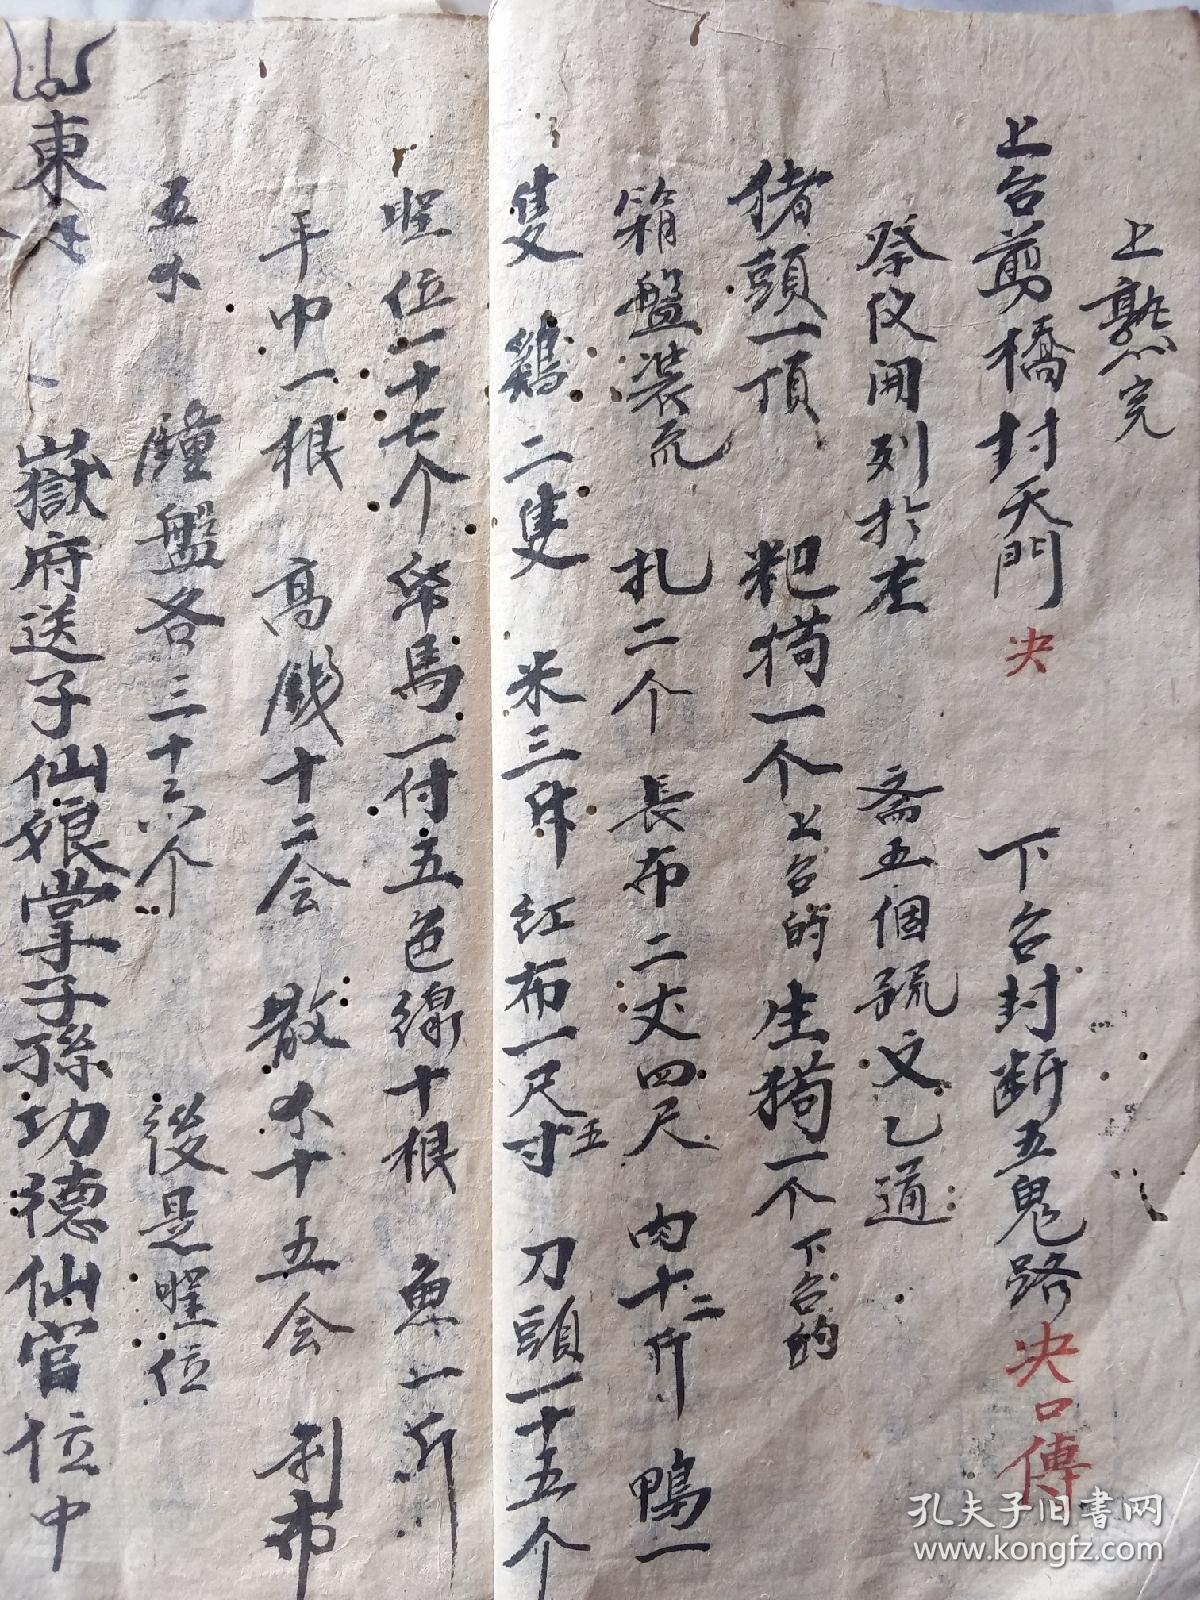 上熟完
上台剪橋封天門 决 下台封断五鬼路 决口傳
祭仪開列於左 斋五個 疏文乙通
猪頭一頂 粑猗一个 上台的 生猗一个 下台的
箱盤裝 扎二个 長布二丈四尺 肉十二斤 鴨一
隻 鷄二隻 米三 红布一尺五寸 刀頭一十五个
位一十七个 馬一付 五色線十根 魚一斤
手巾一根 高戲十二会 散小十五会 利布
五 盤各三十六个 後是位
東 嶽府送子仙娘掌子孫功德仙官位中
孔夫子旧書网
www.kongfz.com